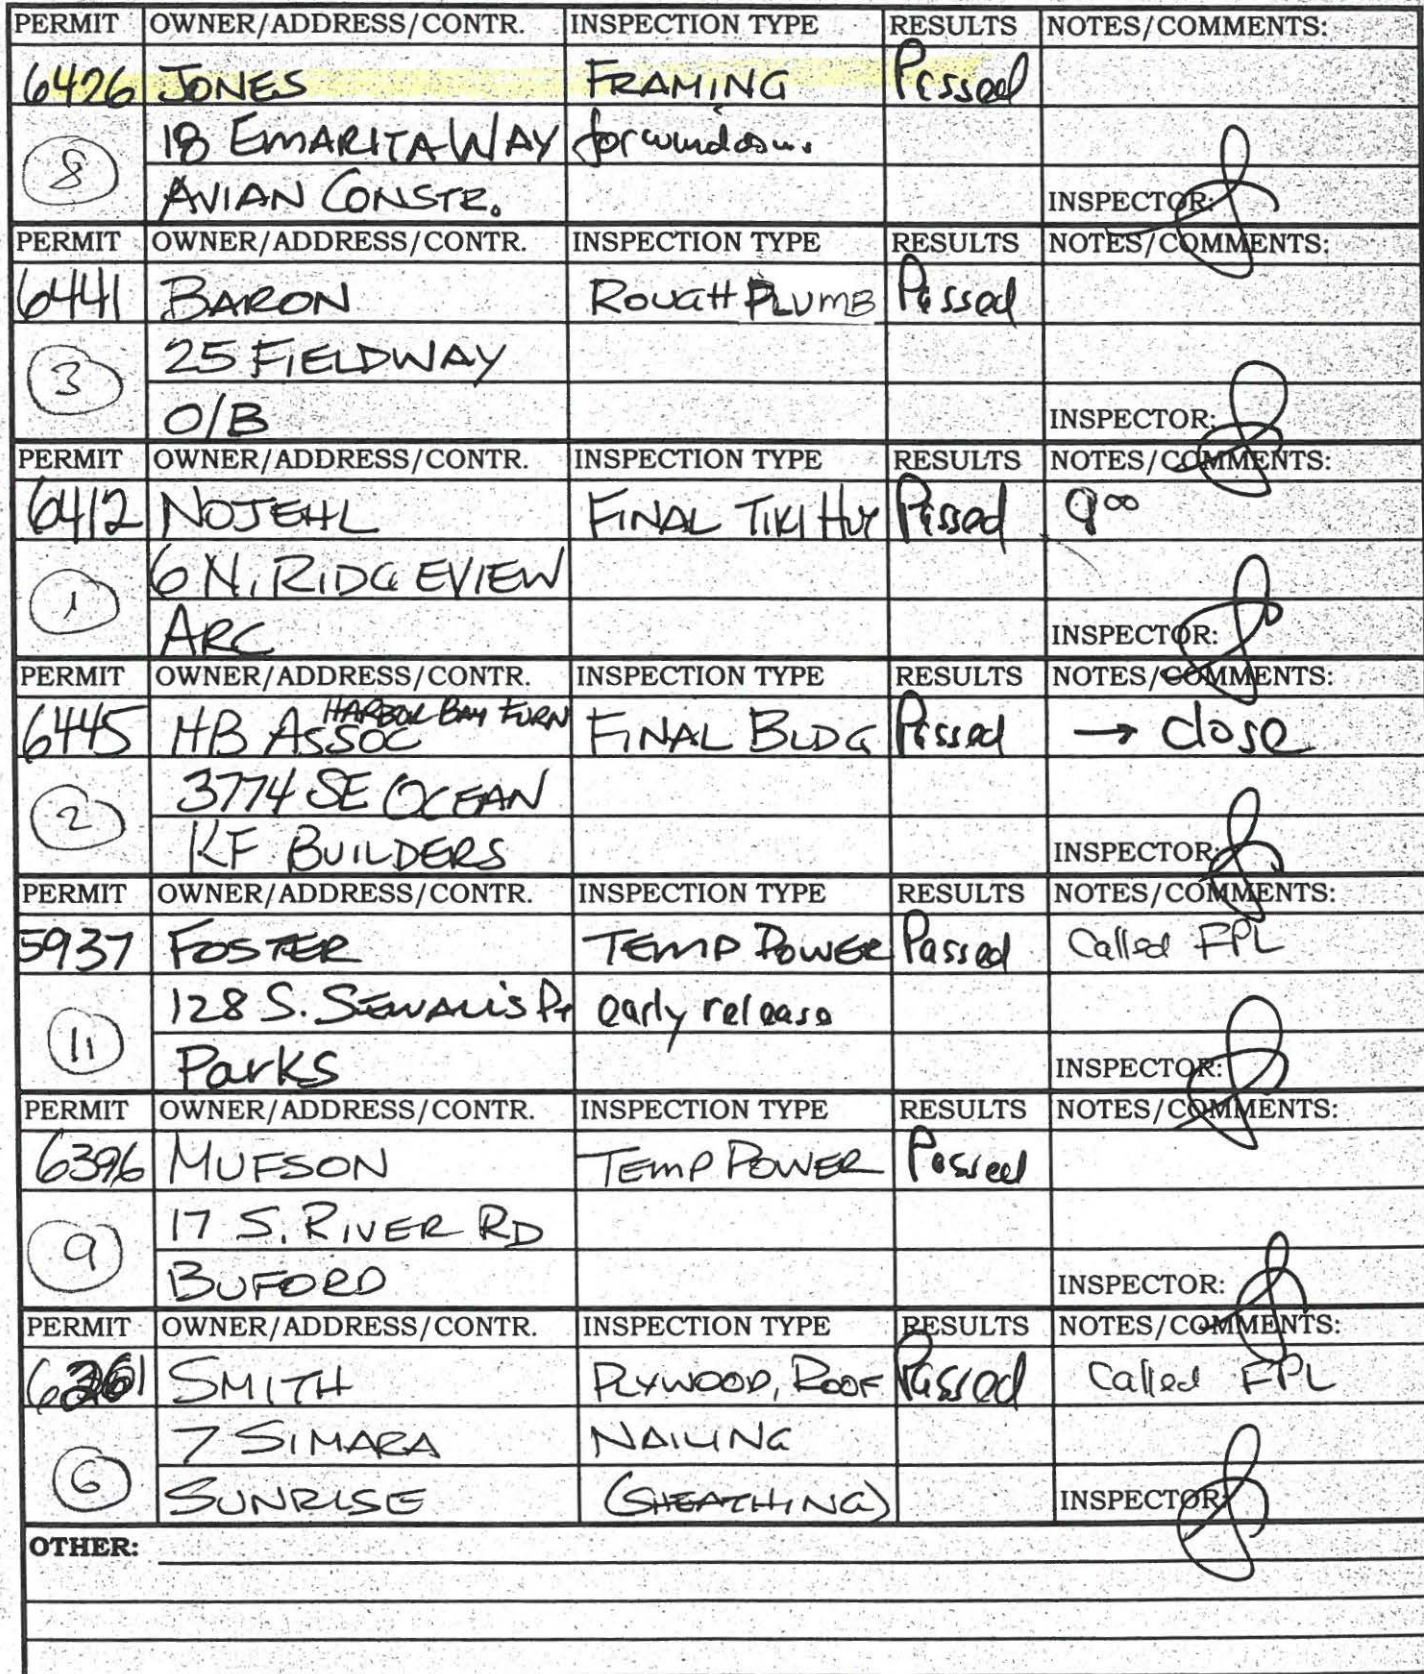 PERMIT OWNER/ADDRESS/CONTR. INSPECTION TYPE RESULTS NOTES/COMMENTS:
6426 JONES FRAMING Passed
18 EMARITA WAY for windows.
8
AVIAN CONSTR. INSPECTOR:
PERMIT OWNER/ADDRESS/CONTR. INSPECTION TYPE RESULTS NOTES/COMMENTS:
6441 BARON ROUGH PLUMB Passed
25 FIELDWAY
3
O/B INSPECTOR:
PERMIT OWNER/ADDRESS/CONTR. INSPECTION TYPE RESULTS NOTES/COMMENTS:
6412 NOJEHL FINAL TIKI HUT Passed 900
6 N. RIDGEVIEW
1
ARC INSPECTOR:
PERMIT OWNER/ADDRESS/CONTR. INSPECTION TYPE RESULTS NOTES/COMMENTS:
HARBOR BAY FURN
6445 HB ASSOC FINAL BLDG Passed → close
3774 SE OCEAN
2
KF BUILDERS INSPECTOR:
PERMIT OWNER/ADDRESS/CONTR. INSPECTION TYPE RESULTS NOTES/COMMENTS:
5937 FOSTER TEMP POWER Passed Called FPL
128 S. SEWALL'S PT early release
11
Parks INSPECTOR:
PERMIT OWNER/ADDRESS/CONTR. INSPECTION TYPE RESULTS NOTES/COMMENTS:
6396 MUFSON TEMP POWER Passed
17 S. RIVER RD
9
BUFORD INSPECTOR:
PERMIT OWNER/ADDRESS/CONTR. INSPECTION TYPE RESULTS NOTES/COMMENTS:
SMITH PLYWOOD, ROOF Passed Called FPL
7 SIMARA NAILING
6
SUNRISE (SHEATHING) INSPECTOR:
OTHER: